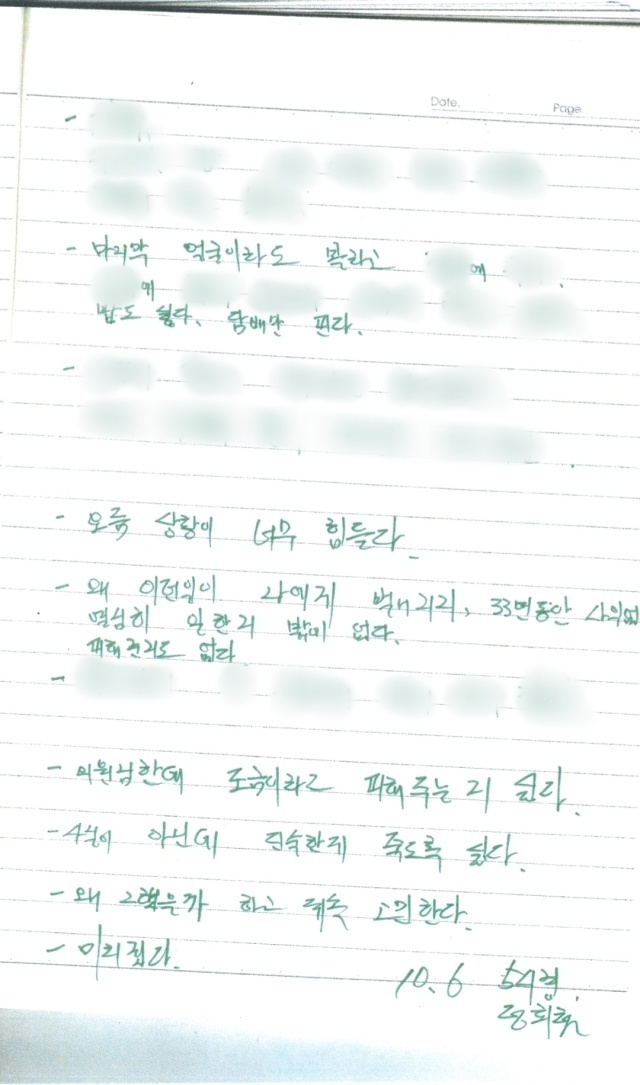 Date. Page.
- 마지막 얼굴이라도 볼라고 에
에
밥도 싫다. 담배만 핀다.
- 오늘 상황이 너무 힘들다.
- 왜 이런일이 나에게 벌어지지, 33년동안
열심히 일한거 밖에 없다.
피해준거도 없다
- 의원님한테 조금이라고 피해주는 거 싫다.
- 사실이 아닌데 진술한게 죽도록 싫다.
- 왜 그랬을까 하고 계속 고민한다.
- 미치겠다.
10.6
정희철